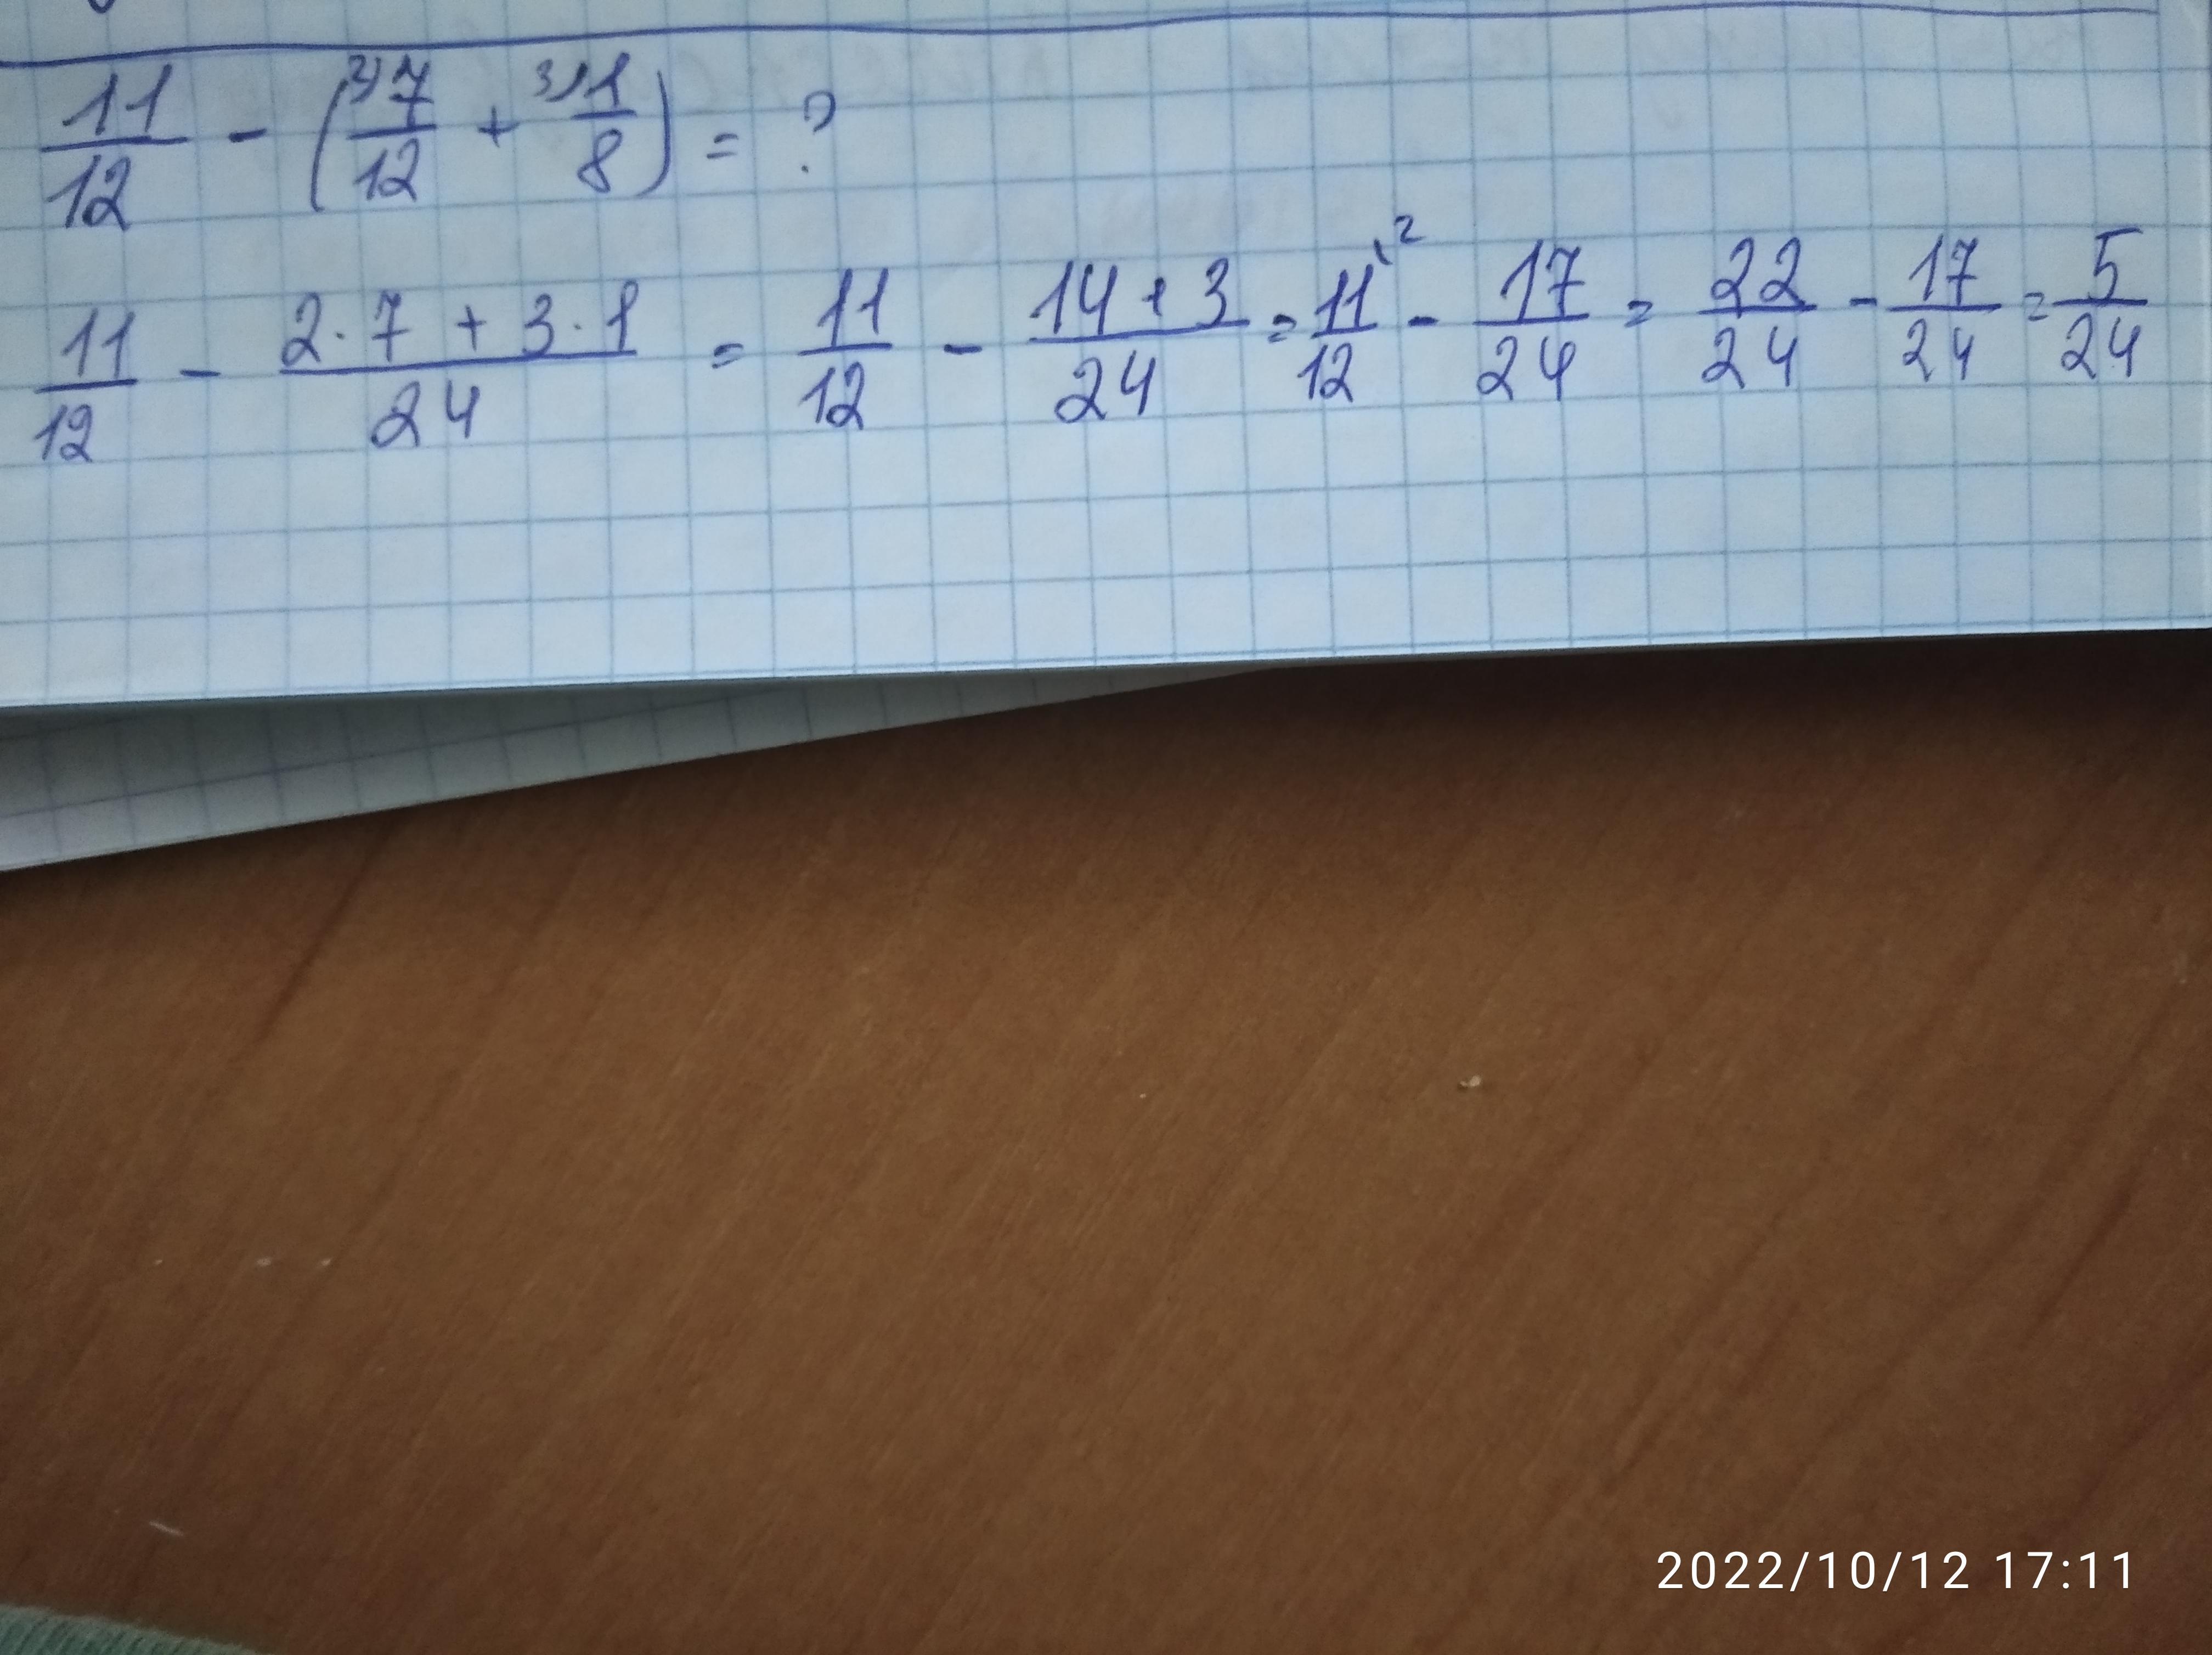 11/12 - (2) 7/12 + 3) 1/8) = ?
11/12 - 2·7 + 3·1/24 = 11/12 - 14+3/24 = 11\2/12 - 17/24 = 22/24 - 17/24 = 5/24
2022/10/12 17:11